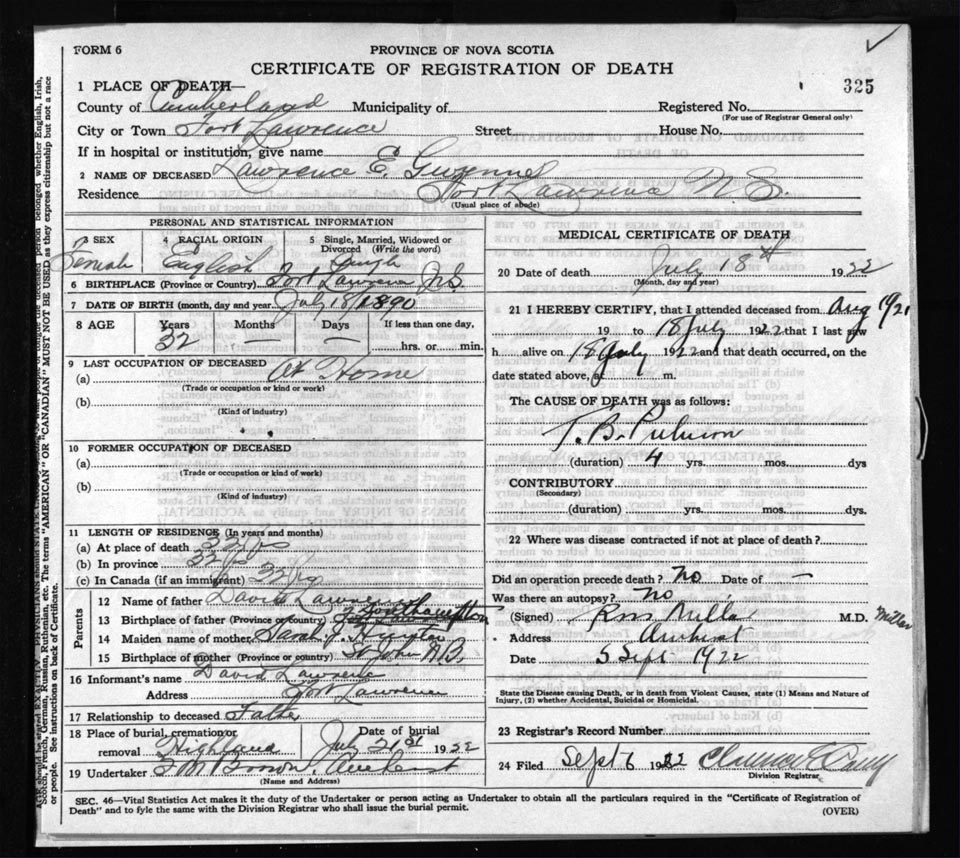 FORM 6
PROVINCE OF NOVA SCOTIA
CERTIFICATE OF REGISTRATION OF DEATH
325
1 PLACE OF DEATH—
County of Cumberland Municipality of Registered No.
(For use of Registrar General only)
City or Town Fort Lawrence Street House No.
If in hospital or institution, give name
2 NAME OF DECEASED Lawrence E.
Residence Fort Lawrence N.S.
(Usual place of abode)
PERSONAL AND STATISTICAL INFORMATION
3 SEX 4 RACIAL ORIGIN 5 Single, Married, Widowed or Divorced (Write the word)
Female English Single
6 BIRTHPLACE (Province or Country) Fort Lawrence N.S.
7 DATE OF BIRTH (month, day and year) July 18/1890
8 AGE Years Months Days If less than one day,
32 — — hrs. or min.
9 LAST OCCUPATION OF DECEASED
(a) At Home
(Trade or occupation or kind or work)
(b)
(Kind of industry)
10 FORMER OCCUPATION OF DECEASED
(a)
(Trade or occupation or kind of work)
(b)
(Kind of industry)
11 LENGTH OF RESIDENCE (In years and months)
(a) At place of death 32 yrs
(b) In province 32 yrs
(c) In Canada (if an immigrant) 32 yrs
Parents
12 Name of father David Lawrence
13 Birthplace of father (Province or country)
14 Maiden name of mother Sarah J.
15 Birthplace of mother (Province or country) St John N.B.
16 Informant's name David Lawrence
Address Fort Lawrence
17 Relationship to deceased Father
18 Place of burial, cremation or removal Highland Date of burial July 21st 1922
19 Undertaker Brown, Amherst
(Name and Address)
MEDICAL CERTIFICATE OF DEATH
20 Date of death July 18th 1922
(Month, day and year)
21 I HEREBY CERTIFY, that I attended deceased from Aug 1921
19 to 18 July 1922 that I last saw
h alive on 18 July 1922 and that death occurred, on the
date stated above, at m.
The CAUSE OF DEATH was as follows:
T. B.
(duration) 4 yrs. mos. dys
CONTRIBUTORY
(Secondary)
(duration) yrs. mos. dys.
22 Where was disease contracted if not at place of death?
Did an operation precede death? no Date of —
Was there an autopsy? no
(Signed) Ross Millar M.D. Millar
Address Amherst
Date 5 Sept 1922
State the Disease causing Death, or in death from Violent Causes, state (1) Means and Nature of
Injury, (2) whether Accidental, Suicidal or Homicidal.
23 Registrar's Record Number
24 Filed Sept 6 1922 Clarence
Division Registrar
SEC. 46—Vital Statistics Act makes it the duty of the Undertaker or person acting as Undertaker to obtain all the particulars required in the "Certificate of Registration of
Death" and to fyle the same with the Division Registrar who shall issue the burial permit.
(OVER)